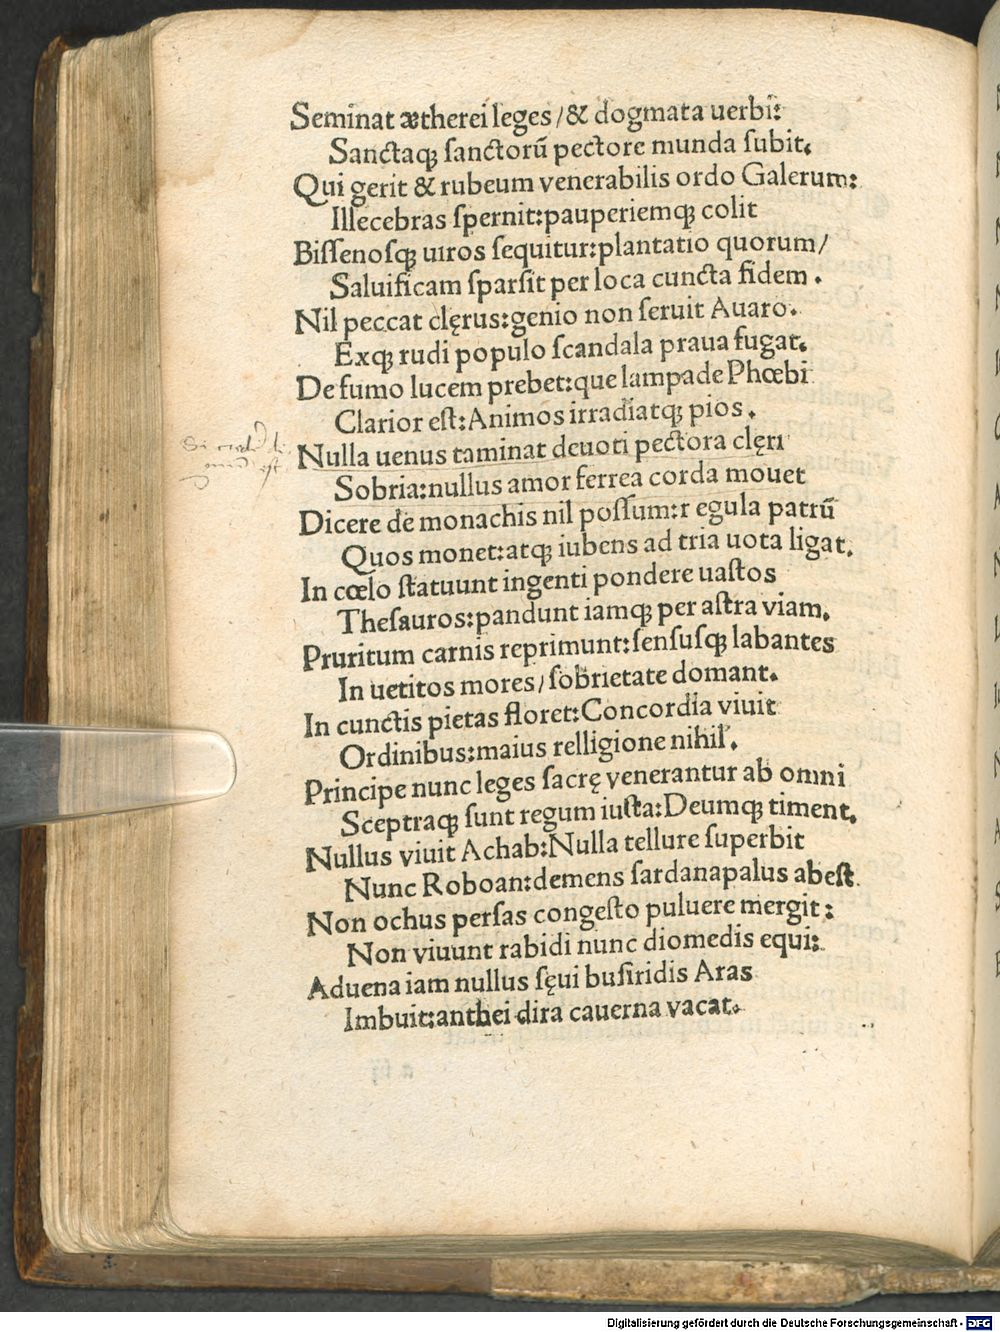 Seminat ætherei leges/& dogmata uerbi:
Sanctaqꝫ ſanctorū pectore munda ſubit.
Qui gerit & rubeum venerabilis ordo Galerum:
Illecebras ſpernit:pauperiemqꝫ colit
Biſſenoſqꝫ uiros ſequitur:plantatio quorum/
Saluificam ſparſit per loca cuncta fidem.
Nil peccat clęrus:genio non ſeruit Auaro.
Exqꝫ rudi populo ſcandala praua fugat.
De fumo lucem prebet:que lampade Phœbi
Clarior eſt:Animos irradiatqꝫ pios.
Nulla uenus taminat deuoti pectora clęri
Sobria:nullus amor ferrea corda mouet
Dicere de monachis nil poſſum:r egula patrū
Quos monet:atqꝫ iubens ad tria uota ligat.
In cœlo ſtatuunt ingenti pondere uaſtos
Theſauros:pandunt iamqꝫ per aſtra viam.
Pruritum carnis reprimunt:ſenſuſqꝫ labantes
In uetitos mores/ſobrietate domant.
In cunctis pietas floret:Concordia viuit
Ordinibus:maius relligione nihil.
Principe nunc leges ſacrę venerantur ab omni
Sceptraqꝫ ſunt regum iuſta:Deumqꝫ timent.
Nullus viuit Achab:Nulla tellure ſuperbit
Nunc Roboan:demens ſardanapalus abeſt
Non ochus perſas congeſto puluere mergit:
Non viuunt rabidi nunc diomedis equi:
Aduena iam nullus ſęui buſiridis Aras
Imbuit:anthei dira cauerna vacat.
Digitalisierung gefördert durch die Deutsche Forschungsgemeinschaft - DFG